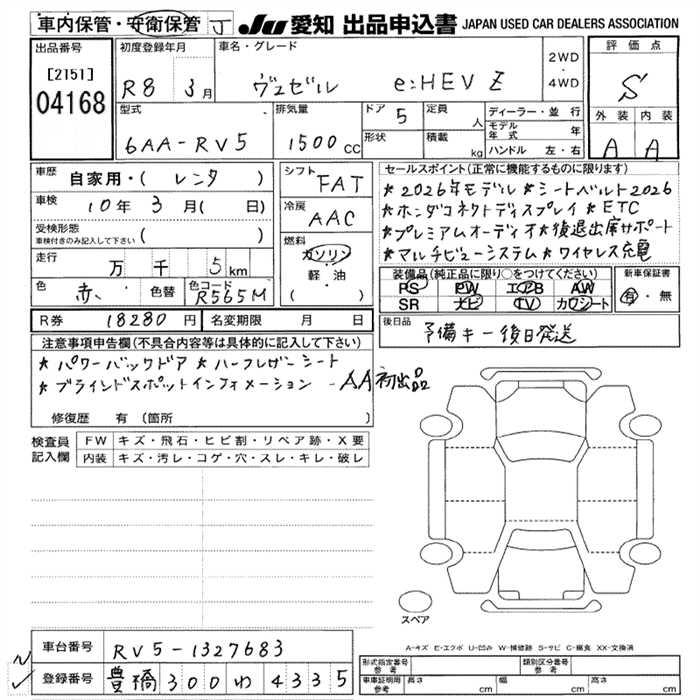 車内保管・安衛保管 J
JU 愛知 出品申込書 JAPAN USED CAR DEALERS ASSOCIATION
出品番号
[2151]
04168
初度登録年月
R8 3月
車名・グレード
ヴェゼル e:HEV Z
2WD
・
4WD
評価点
S
外装 内装
A A
型式
6AA-RV5
排気量
1500cc
ドア 5
形状
定員 人
積載 kg
ディーラー・並行
モデル年式 年
ハンドル 左・右
車歴 自家用・( レンタ )
車検 10年 3月( 日)
受検形態
車検付きのみ記入して下さい ( )
走行 万 千 5km
色 赤、 色替 色コード R565M
シフト FAT
冷房 AAC
燃料
ガソリン
軽・油
( )
セールスポイント(正常に機能するものに限ります)
*2026年モデル *シートベルト2026
*ホンダコネクトディスプレイ *ETC
*プレミアムオーディオ*後退出庫サポート
*マルチビューシステム *ワイヤレス充電
装備品(純正品に限り○をつけてください)
PS PW エアB AW
SR ナビ TV カワシート
新車保証書
有・無
R券 18280円 名変期限 月 日
後日品 予備キー後日発送
注意事項申告欄(不具合内容等は具体的に記入して下さい)
*パワーバックドア *ハーフレザーシート
*ブラインドスポットインフォメーション -AA初出品
修復歴 有(箇所 )
検査員記入欄
FW キズ・飛石・ヒビ割・リペア跡・X要
内装 キズ・汚レ・コゲ・穴・スレ・キレ・破レ
スペア
A-キズ E-エクボ U-凹み W-補修跡 S-サビ C-腐食 XX-交換済
車台番号 RV5-1327683
登録番号 豊橋300わ4335
形式指定番号 参考
類別区分番号 参考
車車証明用 参考 長さ cm 幅 cm 高さ cm